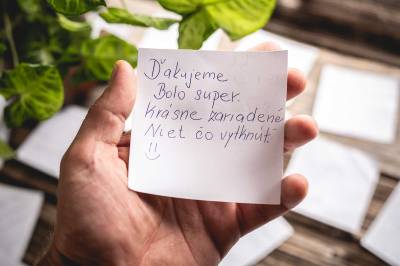 Ďakujeme
Bolo super.
Krásne zariadené
Niet čo vytknúť.